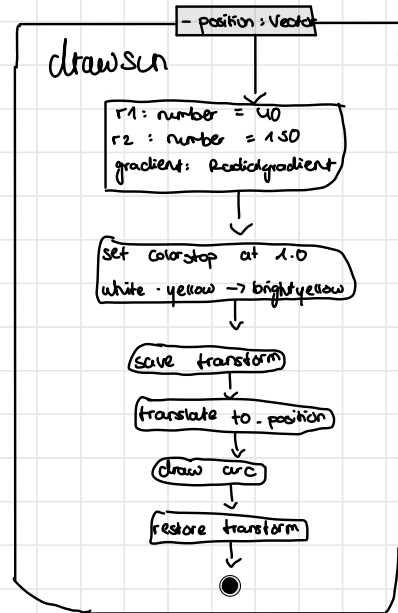 - position : Vector
drawsun
r1 : number = 40
r2 : number = 150
gradient: Radialgradient
set colorstop at 1.0
white - yellow -> brightyellow
save transform
translate to _position
draw arc
restore transform